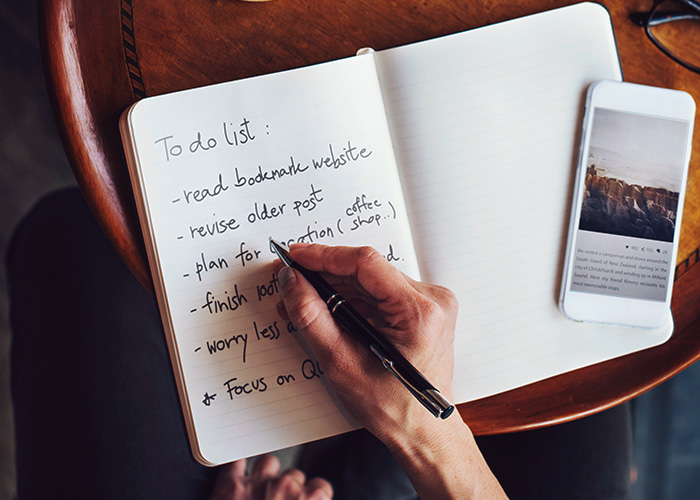 To do list :
- read bookmark website
- revise older post
- plan for ocation ( coffee shop.. )
- finish d.
- worry less
* Focus on
We rented a campervan and drove around the
South Island of New Zealand, starting in the
city of Christchurch and winding up in Milford
Sound. Here my friend Kenny recounts his
most memorable ships.